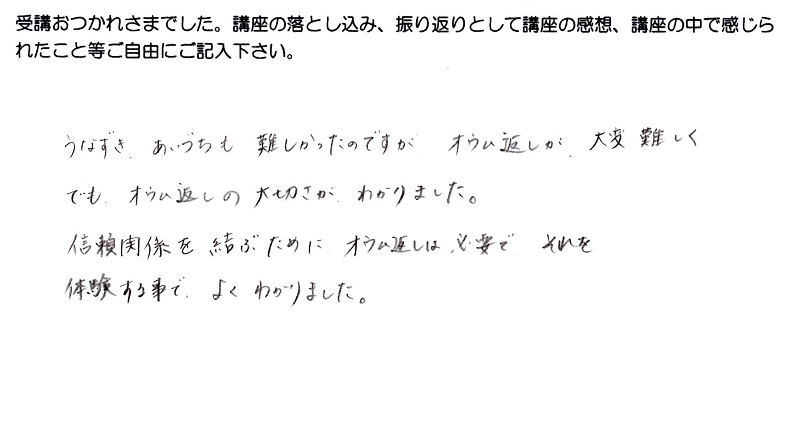 受講おつかれさまでした。講座の落とし込み、振り返りとして講座の感想、講座の中で感じら
れたこと等ご自由にご記入下さい。
うなずき、あいづちも 難しかったのですが オウム返しが、大変 難しく
でも、オウム返しの 大切さが、わかりました。
信頼関係を 結ぶために、オウム返しは、必要で それを
体験する事で、よく わかりました。